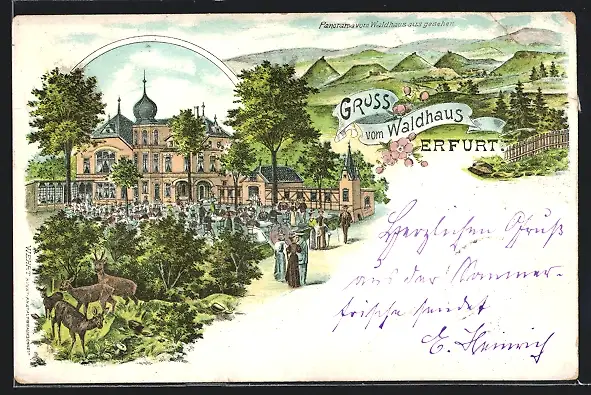 Panorama vom Waldhaus aus gesehen.
GRUSS
vom Waldhaus
ERFURT.
Herzlichen Gruß
aus der Sommer-
frische sendet
E. Heinrich